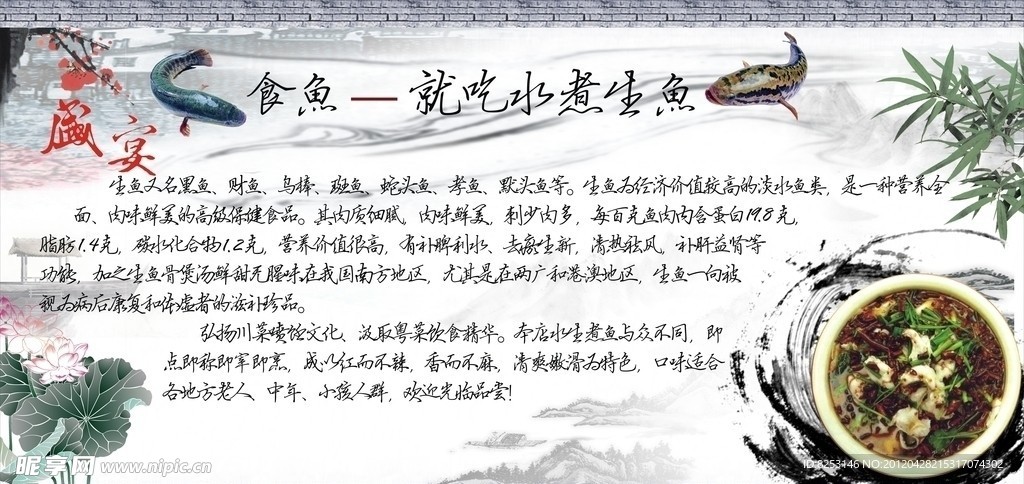 盛宴
食魚—就吃水煮生魚
生鱼又名黑鱼、财鱼、乌棒、斑鱼、蛇头鱼、孝鱼、默头鱼等。生鱼为经济价值较高的淡水鱼类，是一种营养全
面、肉味鲜美的高级保健食品。其肉质细腻，肉味鲜美，刺少肉多，每百克鱼肉内含蛋白19.8克，
脂肪1.4克，碳水化合物1.2克，营养价值很高，有补脾利水、去瘀生新，清热祛风，补肝益肾等
功能，加之生鱼骨煲汤鲜甜无腥味在我国南方地区，尤其是在两广和港澳地区，生鱼一向被
视为病后康复和体虚者的滋补珍品。
弘扬川菜喷饪文化、汲取粤菜饮食精华。本店水生煮鱼与众不同，即
点即称即宰即烹，成以红而不辣，香而不麻，清爽嫩滑为特色，口味适合
各地方老人、中年、小孩人群，欢迎光临品尝!
昵享网 www.nipic.cn
ID:8253146 NO:20120428215317074302